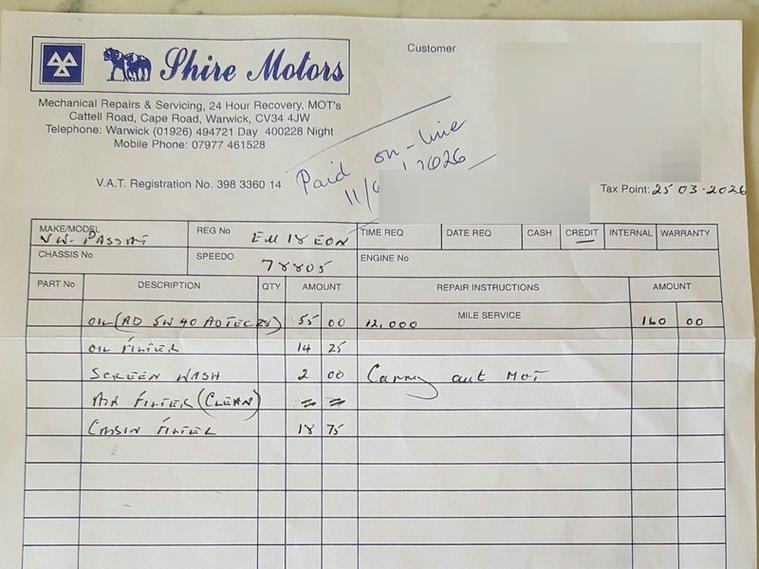 Shire Motors
Customer
Mechanical Repairs & Servicing, 24 Hour Recovery, MOT's
Cattell Road, Cape Road, Warwick, CV34 4JW
Telephone: Warwick (01926) 494721 Day 400228 Night
Mobile Phone: 07977 461528
Paid on-line
2026
V.A.T. Registration No. 398 3360 14
Tax Point: 25 03-2026
MAKE/MODEL VW. PASSAT REG No EM18 EON TIME REQ DATE REQ CASH CREDIT INTERNAL WARRANTY
CHASSIS No SPEEDO 78805 ENGINE No
PART No DESCRIPTION QTY AMOUNT REPAIR INSTRUCTIONS AMOUNT
OIL (AD 5W40 ADTEC) 55 00 12,000 MILE SERVICE 160 00
OIL FILTER 14 25
SCREEN WASH 2 00 Carry out MOT
AIR FILTER (CLEAN)
CABIN FILTER 18 75